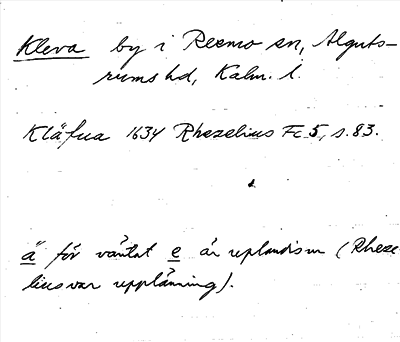 Kleva by i Resmo sn, Alguts-
rums hd, Kalm. l.
Kläfua 1634 Rhezelius Fc 5, s. 83.
ä för väntat e är uplandism (Rheze
lius var upplänning).